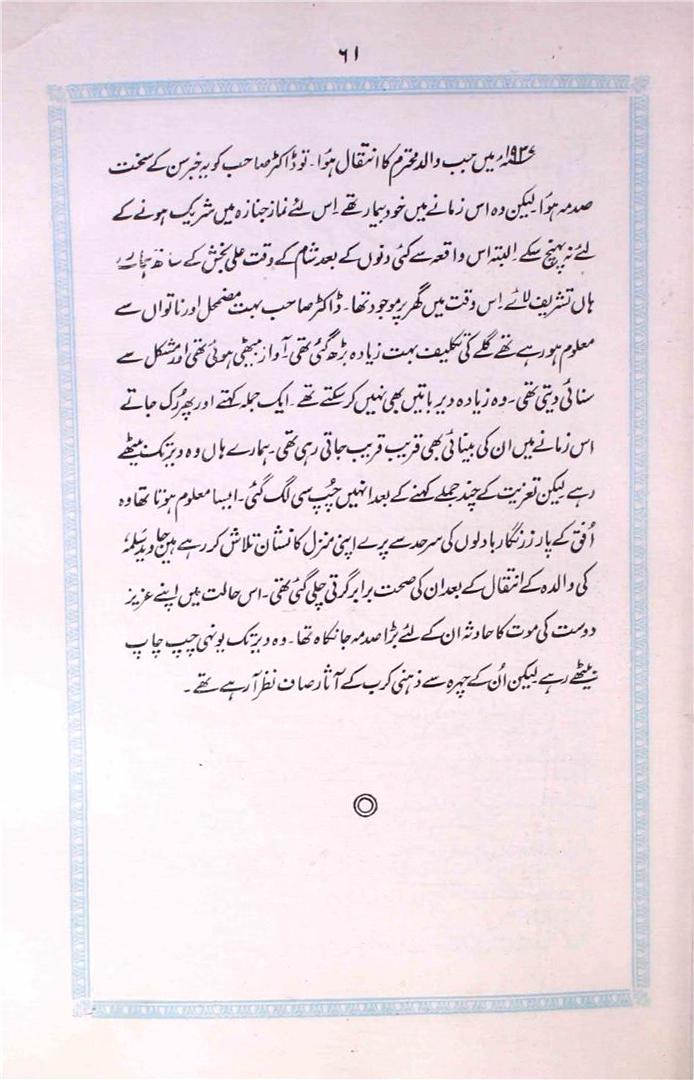 ۶۱
۱۹۳۷ء میں جب والد محترم کا انتقال ہؤا۔ تو ڈاکٹر صاحب کو یہ خبر سن کے سخت
صدمہ ہؤا لیکن وہ اس زمانے میں خود بیمار تھے۔ اِس لئے نماز جنازہ میں شریک ہونے کے
لئے نہ پہنچ سکے۔ البتہ اس واقعہ سے کئی دنوں کے بعد شام کے وقت علی بخش کے ساتھ ہمارے
ہاں تشریف لائے۔ اِس وقت میں گھر پر موجود تھا۔ ڈاکٹر صاحب بہت مضمحل اور ناتواں سے
معلوم ہو رہے تھے گلے کی تکلیف بہت زیادہ بڑھ گئی تھی۔ آواز بیٹھی ہوئی تھی اور مشکل سے
سنائی دیتی تھی۔ وہ زیادہ دیر باتیں بھی نہیں کر سکتے تھے۔ ایک جملہ کہتے اور پھر رُک جاتے
اس زمانے میں ان کی بینائی بھی قریب قریب جاتی رہی تھی۔ ہمارے ہاں وہ دیر تک بیٹھے
رہے لیکن تعزیت کے چند جملے کہنے کے بعد انہیں چُپ سی لگ گئی۔ ایسا معلوم ہوتا تھا وہ
اُفق کے پار زرنگار بادلوں کی سرحد سے پرے اپنی منزل کا نشان تلاش کر رہے ہیں جاوید سلمہٗ
کی والدہ کے انتقال کے بعد ان کی صحت برابر گرتی چلی گئی تھی۔ اس حالت میں اپنے عزیز
دوست کی موت کا حادثہ ان کے لئے بڑا صدمہ جانکاہ تھا۔ وہ دیر تک یونہی چپ چاپ
بیٹھے رہے لیکن اُن کے چہرہ سے ذہنی کرب کے آثار صاف نظر آ رہے تھے۔